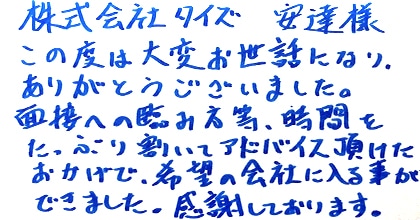 株式会社タイズ 安達様
この度は大変お世話になり、
ありがとうございました。
面接への臨み方等、時間を
たっぷり割いてアドバイス頂けた
おかげで、希望の会社に入る事が
できました。感謝しております。